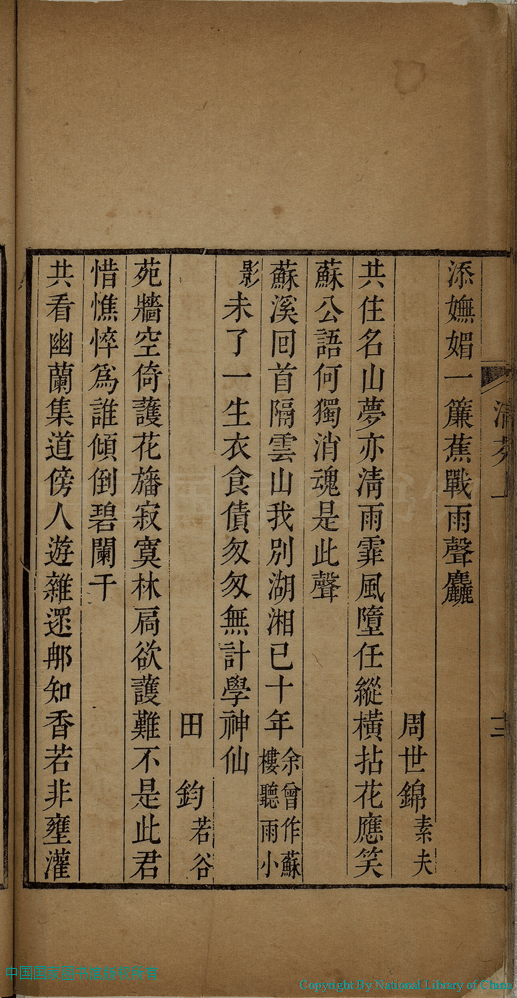 添嫵媚一簾蕉戰雨聲麤
周世錦素夫
共住名山夢亦淸雨霏風墮任縱橫拈花應笑
蘇公語何獨消魂是此聲
蘇溪回首隔雲山我別湖湘已十年余曾作蘇樓聽雨小
影未了一生衣食債匆匆無計學神仙
田鈞若谷
苑牆空倚護花旛寂寞林扃欲護難不是此君
惜憔悴爲誰傾倒碧闌干
共看幽蘭集道傍人遊雜遝郍知香若非壅灌
十二
Copyright By National Library of China